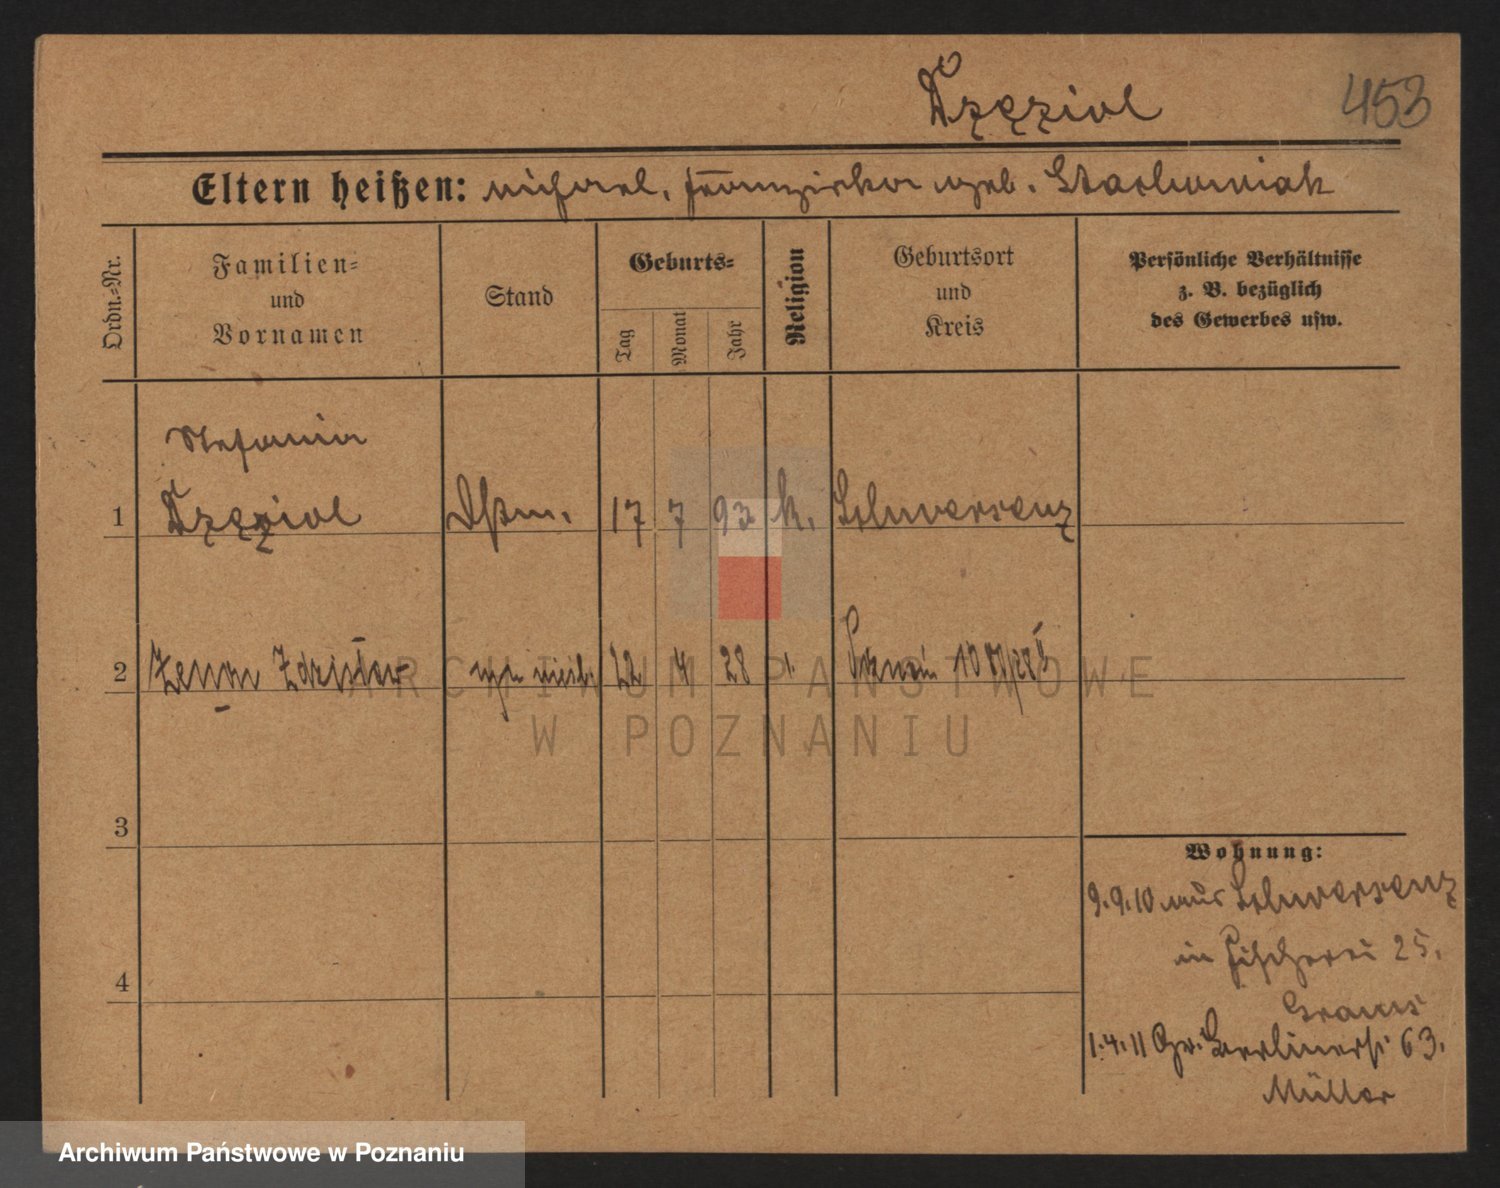 453
Eltern heißen: Michael, Franziska geb. Stachowiak
Ordn.-Nr.
Familien-
und
Vornamen
Stand
Geburts-
Tag
Monat
Jahr
Religion
Geburtsort
und
Kreis
Persönliche Verhältnisse
z. B. bezüglich
des Gewerbes usw.
Stefania
1 17 7 93 k. Schwersenz
2 Zenon Zdzisław 22 4 28
3
4
Wohnung:
9.9.10 aus Schwersenz
in Fischerei 25.
1.4.11 Gr. Berlinerst 63.
Müller
ARCHIWUM PAŃSTWOWE
W POZNANIU
Archiwum Państwowe w Poznaniu